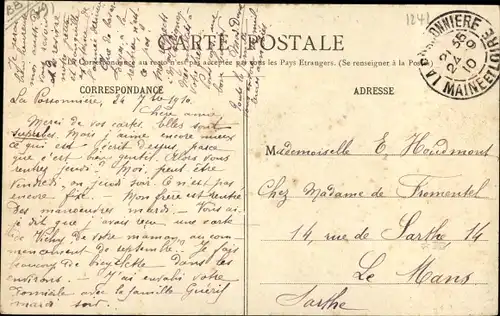 CARTE POSTALE
La Correspondance au recto n'est pas acceptée par tous les Pays Etrangers. (Se renseigner à la Poste)
CORRESPONDANCE
ADRESSE
1241
LA POSSONNIERE
24 9 10
MAINE ET LOIRE
La Possonnière, 24 7bre 1910.
Chère amie,
Merci de vos cartes. Elles sont
superbes. Mais j'aime encore mieux
ce qui est écrit dessus, parce
que c'est bien gentil. Alors vous
rentrez jeudi? Moi, peut être
vendredi, ou jeudi soir. Ce n'est pas
encore fixé. - Mon frère est rentré
des manœuvres mardi. - Vous ai-
je dit que j'avais reçu une carte
de Vichy de votre maman au com-
mencement de septembre? Je fais
beaucoup de bicyclette dans les
environs. - J'ai envahi votre
domicile avec la famille Guérif
mardi soir.
Mademoiselle E. Houdmont
Chez Madame de Fromentel
14, rue de Sarthe, 14
Le Mans
Sarthe